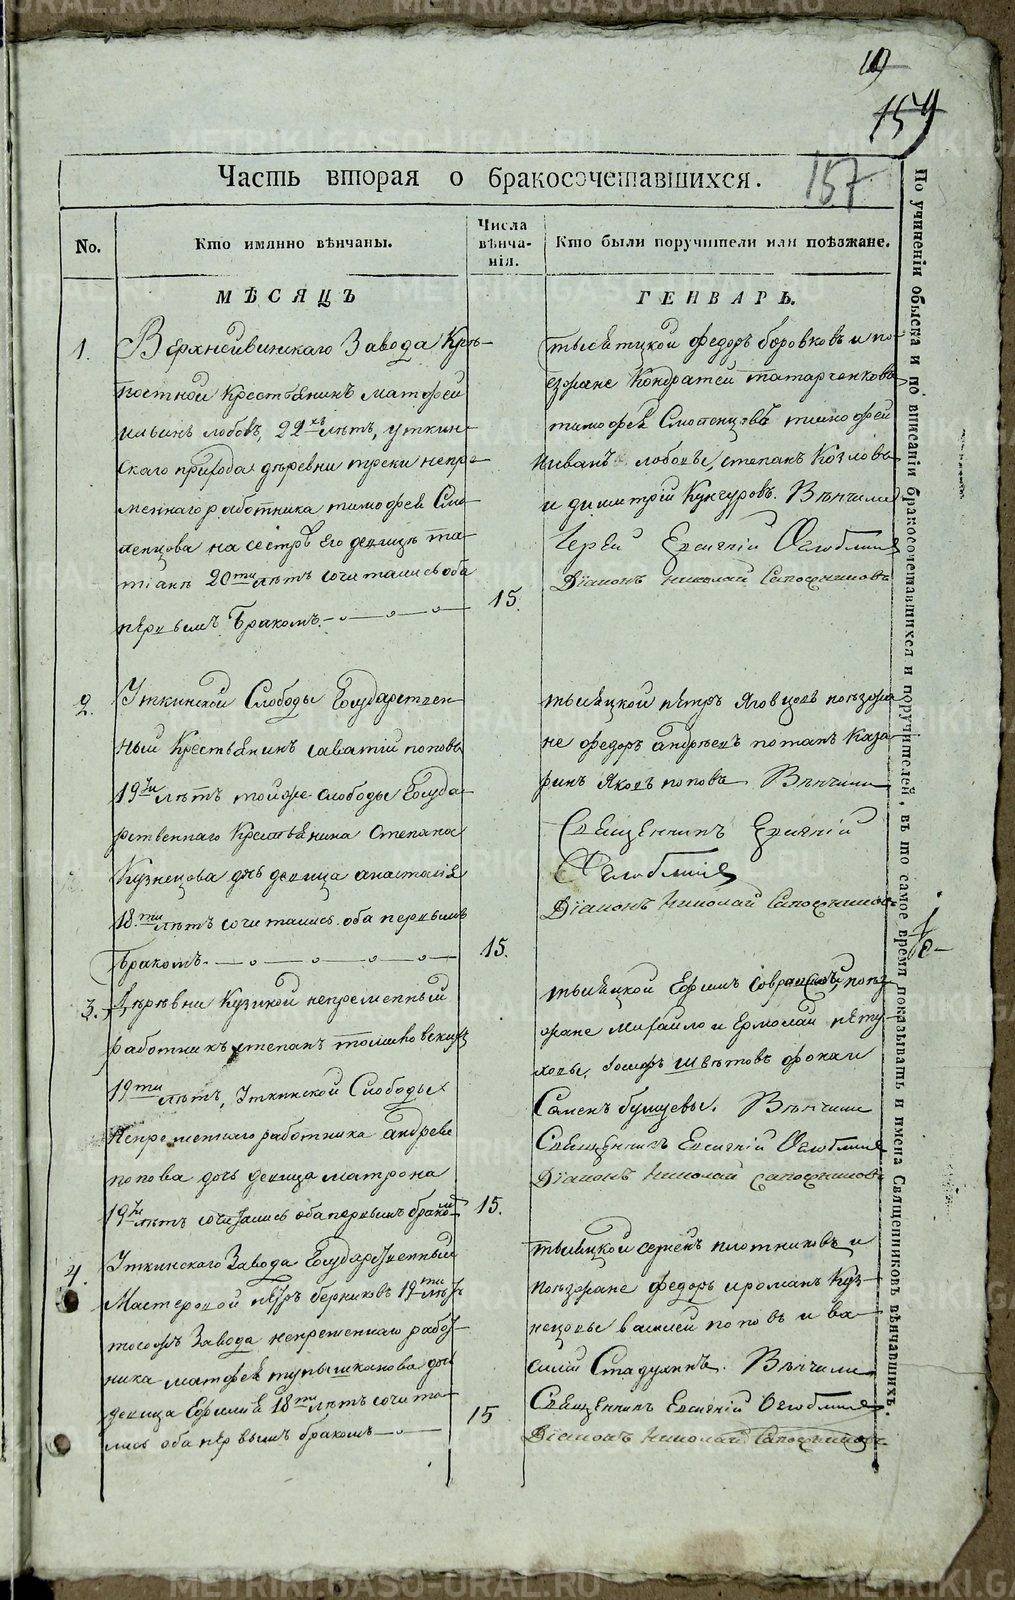 19
159
157
Часть вторая о бракосочетавшихся.
No.
Кто имянно вѣнчаны.
Числа вѣнча-нія.
Кто были поручители или поѣзжане.
МѢСЯЦЪ
ГЕНВАРЬ.
1.
Верхнейвинскаго Завода Крѣ-
постной Крестьянинъ матфей
ильинъ лобовъ, 22хъ лѣтъ, уткин-
скаго прихода деревни треки непре-
меннаго работника тимофея Смо-
ленцова на сестрѣ его девицѣ та-
тіанѣ 20ти лѣтъ сочитались оба
первымъ бракомъ.
15.
тысяцкой федоръ боровковъ и по-
езжане Кондратей татарченковъ
тимофей Смоленцовъ тимофей
иванъ лобовы, степанъ Козловъ
и димитрій Кунгуровъ. Вѣнчили
Іерей Евсигній Оглоблинъ
Діаконъ Николай Сапожниковъ
2.
Уткинской Слободы Государствен-
ный Крестьянинъ саватій поповъ
19ти лѣтъ тойже слободы Госуда-
рственнаго Крестьянина Степана
Кузнецова дчь девица анастасія
18ти лѣтъ сочитались оба первымъ
бракомъ.
15.
тысяцкой петръ Яговцовъ поѣзжа-
не федоръ андреевъ потапъ Каза-
ринъ Яковъ поповъ Вѣнчили
Священникъ Евсигній
Оглоблинъ
Діаконъ Николай Сапожниковъ
3.
Деревни Кузиной непременный
работникъ степанъ
19ти лѣтъ, Уткинской Слободы
Непременнаго работника андрея
попова дочь девица матрона
19ти лѣтъ сочитались оба первымъ бракомъ
15.
тысяцкой Ефимъ поѣ-
зжане михайло и Ермолай пету-
ховы, фока и
Семенъ бушуевы. Вѣнчили
Священникъ Евсигній Оглоблинъ
Діаконъ Николай Сапожниковъ
4.
Уткинскаго Завода Государственный
Мастеровой петръ берниковъ 19ти лѣтъ
тогожъ Завода непременнаго работ-
ника матфея дчь
девица Ефимія 18ти лѣтъ сочита-
лись оба первымъ бракомъ
15
тысяцкой семенъ плотниковъ и
поѣзжане федоръ и романъ Куз-
нецовы василей поповъ и ва-
силій Стадухинъ. Вѣнчили
Священникъ Евсигній Оглоблинъ
Діаконъ Николай Сапожниковъ
По учиненіи обыска и по вписаніи бракосочетавшихся и поручителей, въ то самое время показывать и имена Священниковъ вѣнчавшихъ.
METRIKI.GASO-URAL.RU